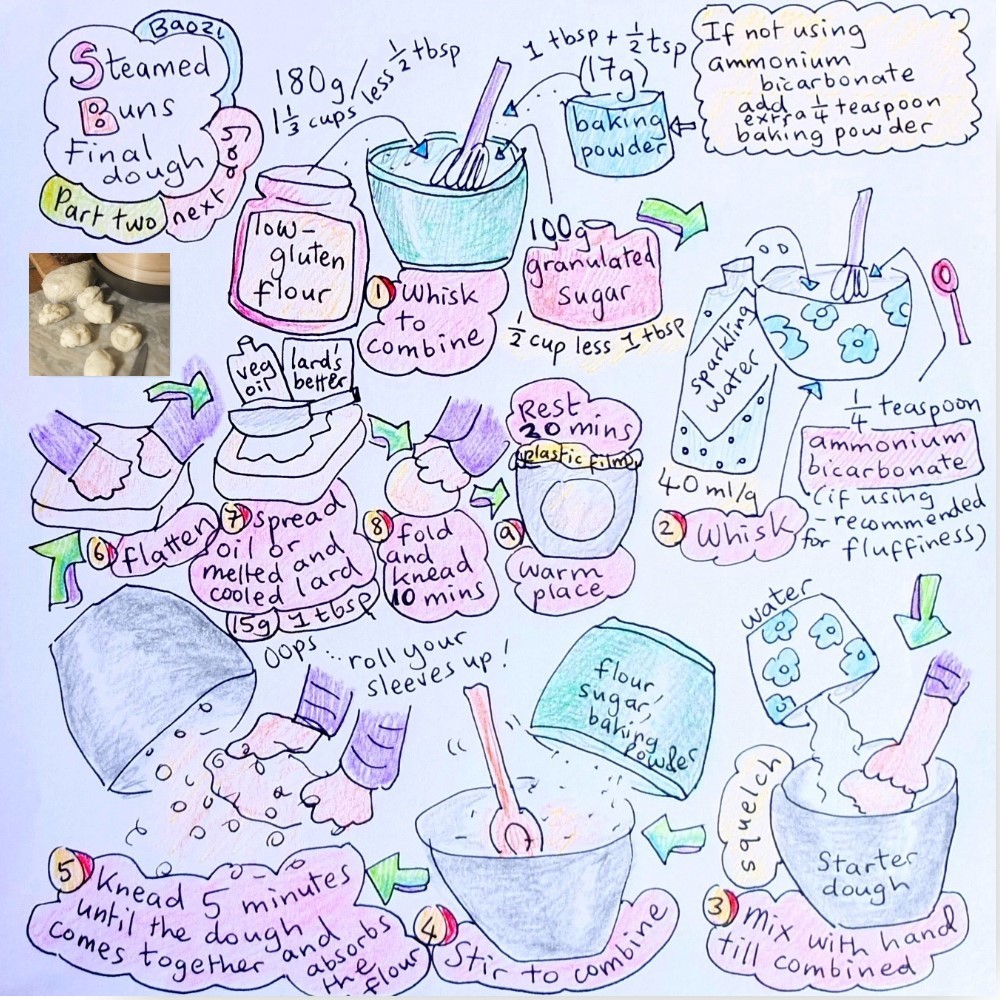 Baozi
Steamed
Buns
Final
dough
Part two
next day
180g/
1 1/3 cups less 1/2 tbsp
low-
gluten
flour
1 tbsp + 1/2 tsp
(17g)
baking
powder
If not using
ammonium
bicarbonate
add
extra 1/4 teaspoon
baking powder
100g
granulated
sugar
1/2 cup less 1 tbsp
1 Whisk
to
combine
sparkling
water
40 ml/g
1/4 teaspoon
ammonium
bicarbonate
(if using
- recommended
for fluffiness)
2 Whisk
water
squelch
Starter
dough
3 Mix with hand
till combined
flour,
sugar,
baking
powder
4 Stir to combine
Oops... roll your
sleeves up!
5 Knead 5 minutes
until the dough
comes together and
absorbs
the
flour
6 flatten
veg
oil
lard's
better
7 spread
oil or
melted and
cooled lard
15g 1 tbsp
8 fold
and
knead
10 mins
Rest
20 mins
plastic film
9
warm
place